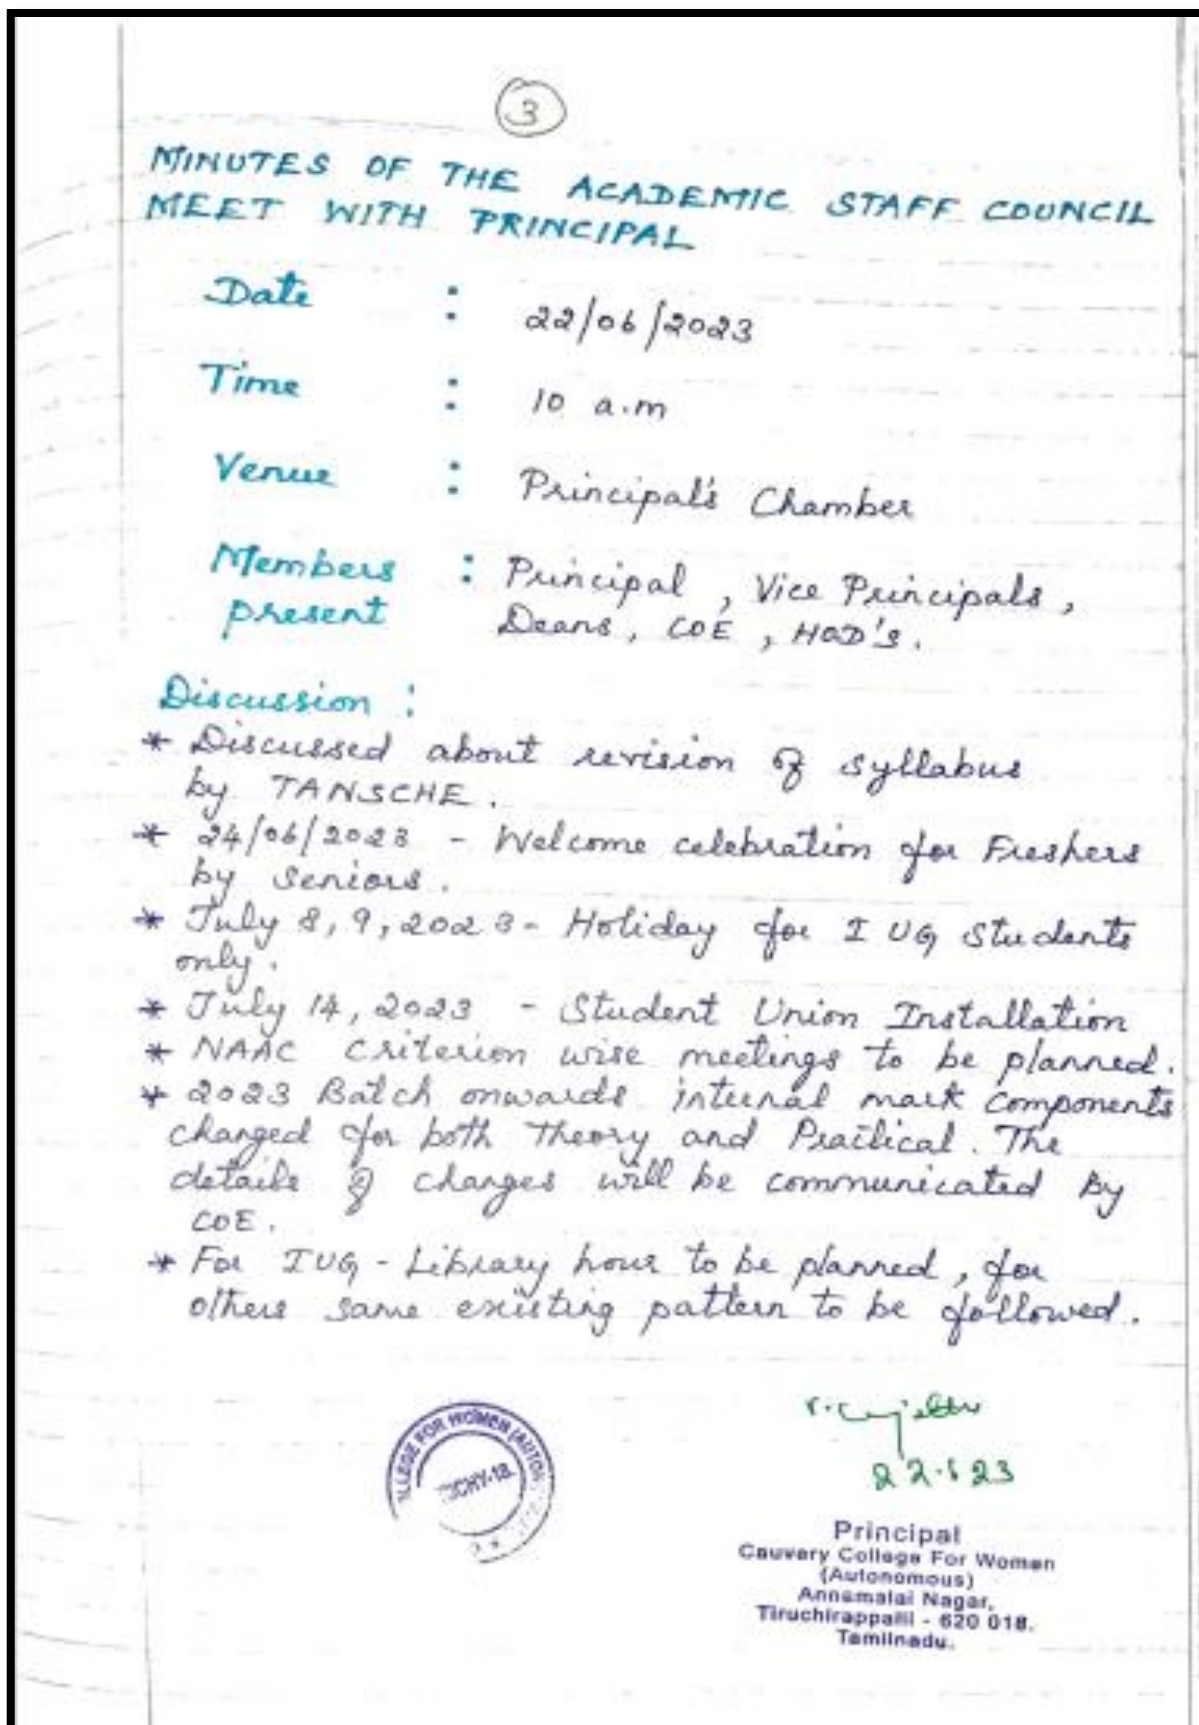 3
MINUTES OF THE ACADEMIC STAFF COUNCIL
MEET WITH PRINCIPAL
Date : 22/06/2023
Time : 10 a.m
Venue : Principal's Chamber
Members : Principal, Vice Principals,
present Deans, COE, HOD's.
Discussion :
* Discussed about revision of syllabus
by TANSCHE.
* 24/06/2023 - Welcome celebration for Freshers
by Seniors.
* July 8, 9, 2023 - Holiday for I UG Students
only.
* July 14, 2023 - Student Union Installation
* NAAC Criterion wise meetings to be planned.
* 2023 Batch onwards internal mark components
changed for both Theory and Practical. The
details of changes will be communicated by
COE.
* For I UG - Library hour to be planned, for
others same existing pattern to be followed.
LLEGE FOR WOMEN (AUTON
CHY-18.
Principal
Cauvery College For Women
(Autonomous)
Annamalai Nagar,
Tiruchirappalli - 620 018.
Tamilnadu.